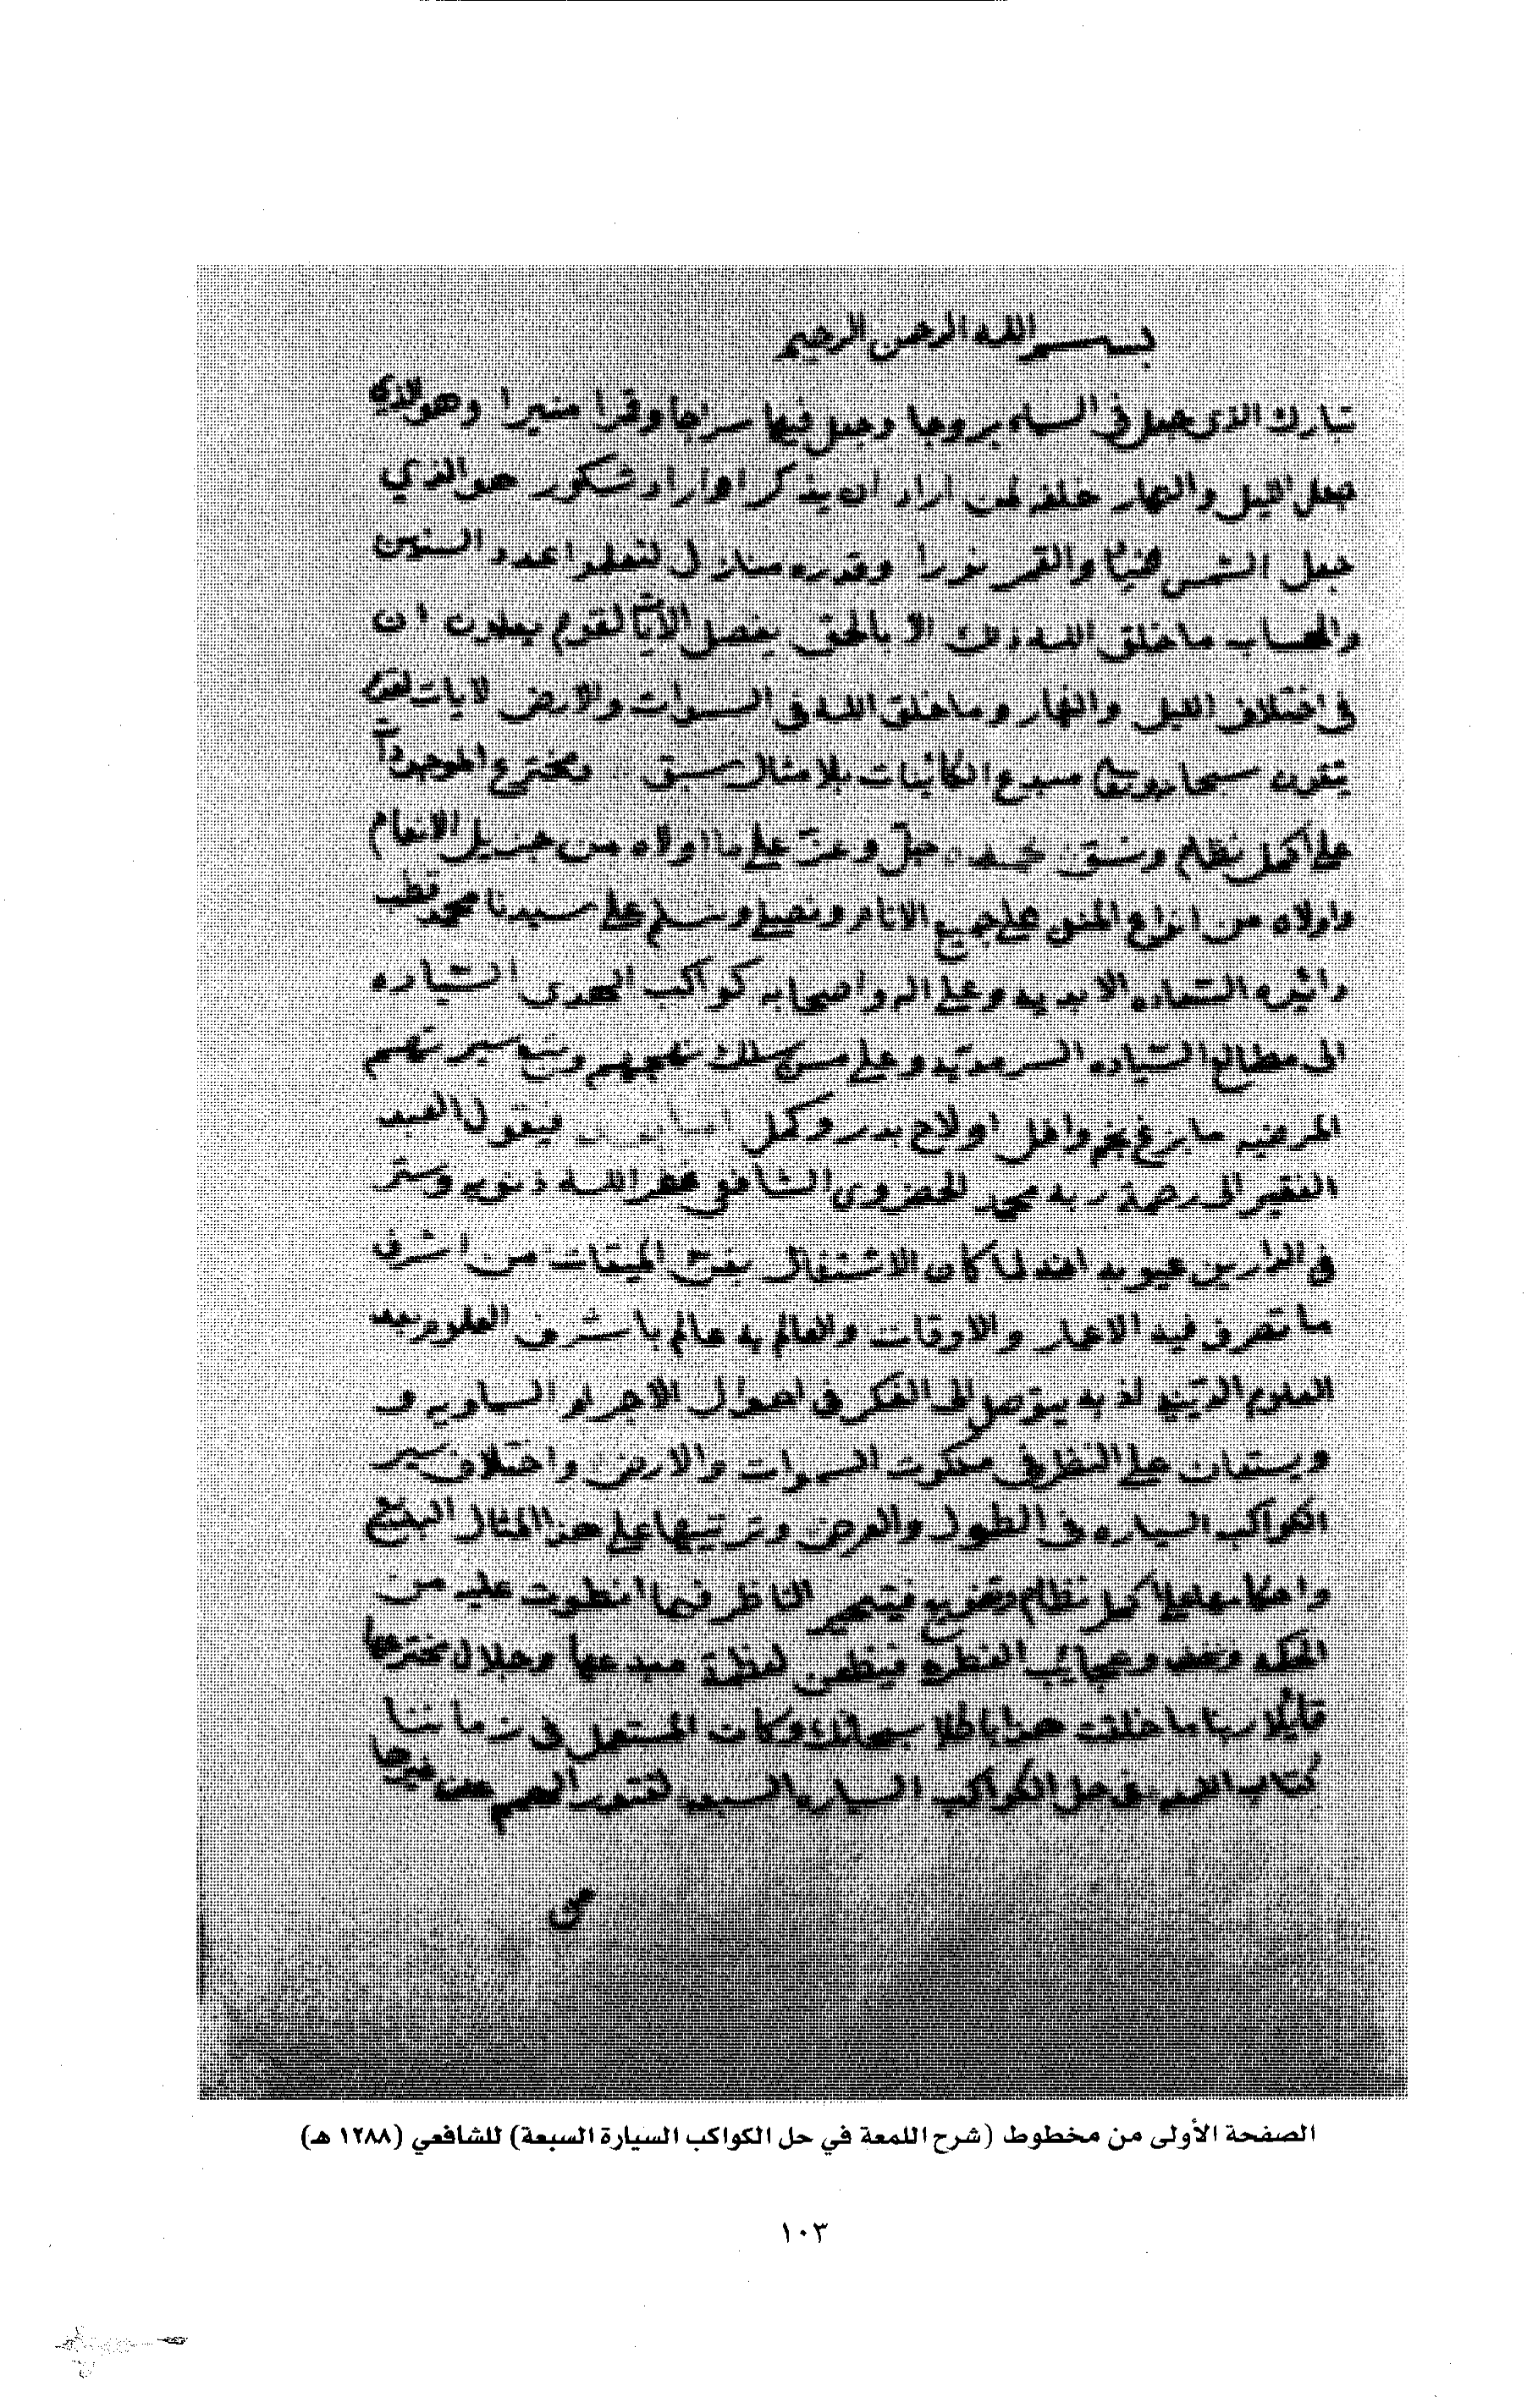 بسم الله الرحمن الرحيم
تبارك الذى جعل فى السماء بروجا وجعل فيها سراجا وقمرا منيرا وهو الذي
جعل الليل والنهار خلفة لمن اراد ان يذكر او اراد شكورا هو الذي
جعل الشمس ضياء والقمر نورا وقدره منازل لتعلموا عدد السنين
والحساب ما خلق الله ذلك الا بالحق يفصل الآيات لقوم يعلمون ان
فى اختلاف الليل والنهار وما خلق الله فى السموات والارض لايات لقوم
يتقون سبحانه وتعالى مبدع الكائنات بلا مثال سبق ومخترع الموجودات
على اكمل نظام ونسق نحمده جلّ وعزّ على ما اولاه من جزيل الانعام
واولاه من انواع المنن على جميع الانام ونصلى ونسلم على سيدنا محمد قطب
دائرة السعاده الابديه وعلى اله واصحابه كواكب الهدى السّياره
الى مطالع السّياده السرمديّه وعلى من سلك نهجهم وتبع سيرتهم
المرضيه ما بزغ نجم وافل او لاح بدر وكمل فيقول العبد
الفقير الى رحمة ربه محمد الخضروى الشافعى غفر الله ذنوبه وستر
فى الدارين عيوبه انه لما كان الاشتغال بفنّ الميقات من اشرف
ما تصرف فيه الاعمار والاوقات والعالم به عالم باشرف العلوم بعد
العلوم الدّينيه اذ به يتوصل الى الفكر فى احوال الاجرام السماويه و
ويستعان على النظر فى ملكوت السموات والارض واختلاف سير
الكواكب السياره فى الطول والعرض وترتيبها على هذا المثال البديع
واحكامها على اكمل نظام فيتحير الناظر فيما انطوت عليه من
الحكم وعجائب الفطره لعظمة مبدعها وجلال مخترعها
قائلا ربنا ما خلقت هذا باطلا سبحانك وكان المستعمل فى زماننا
كتاب اللمعه فى حل الكواكب السياره السبعه لقصور الهمم عن غيرها
الصفحة الأولى من مخطوط (شرح اللمعة في حل الكواكب السيارة السبعة) للشافعي (١٢٨٨ هـ)
١٠٣